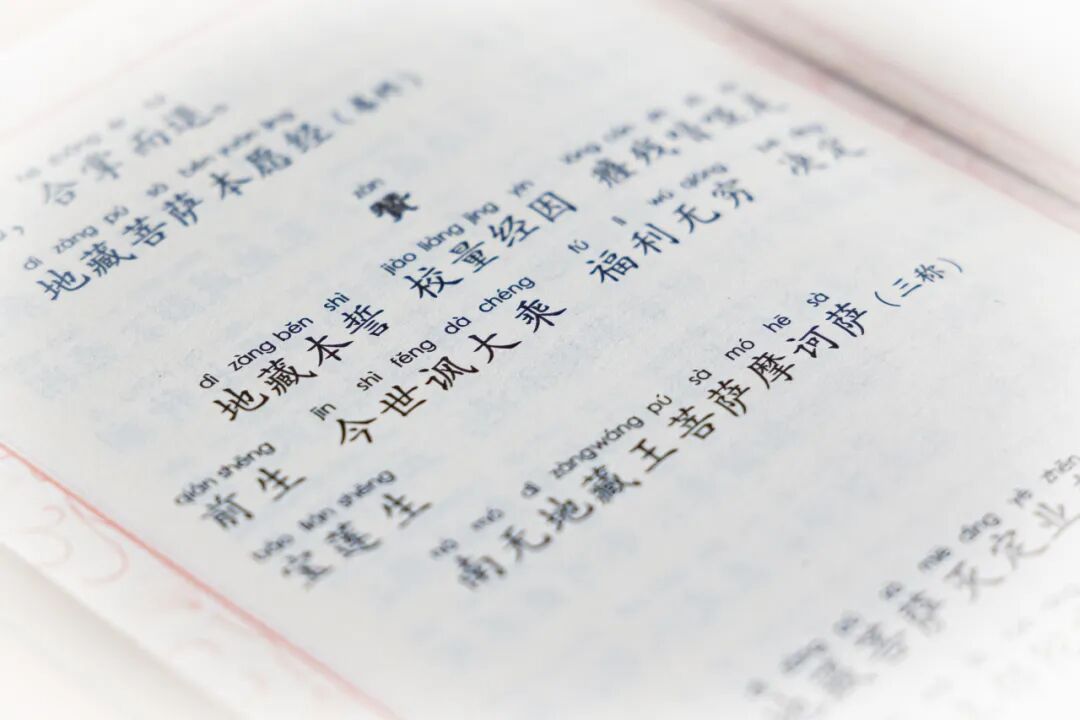 合掌而退。
dì zàng pú sà běn yuàn jīng
地藏菩萨本愿经
zàn
赞
dì zàng běn shì jiào liàng jīng yīn
地藏本誓 校量经因 癃残喑哑是
qián shēng jīn shì fěng dà chéng fú lì wú qióng
前生 今世讽大乘 福利无穷 决定
bǎo lián shēng
宝莲生
ná mó dì zàng wáng pú sà mó hē sà
南无地藏王菩萨摩诃萨（三称）
zàng pú sà miè dìng yè zhēn
地藏菩萨灭定业